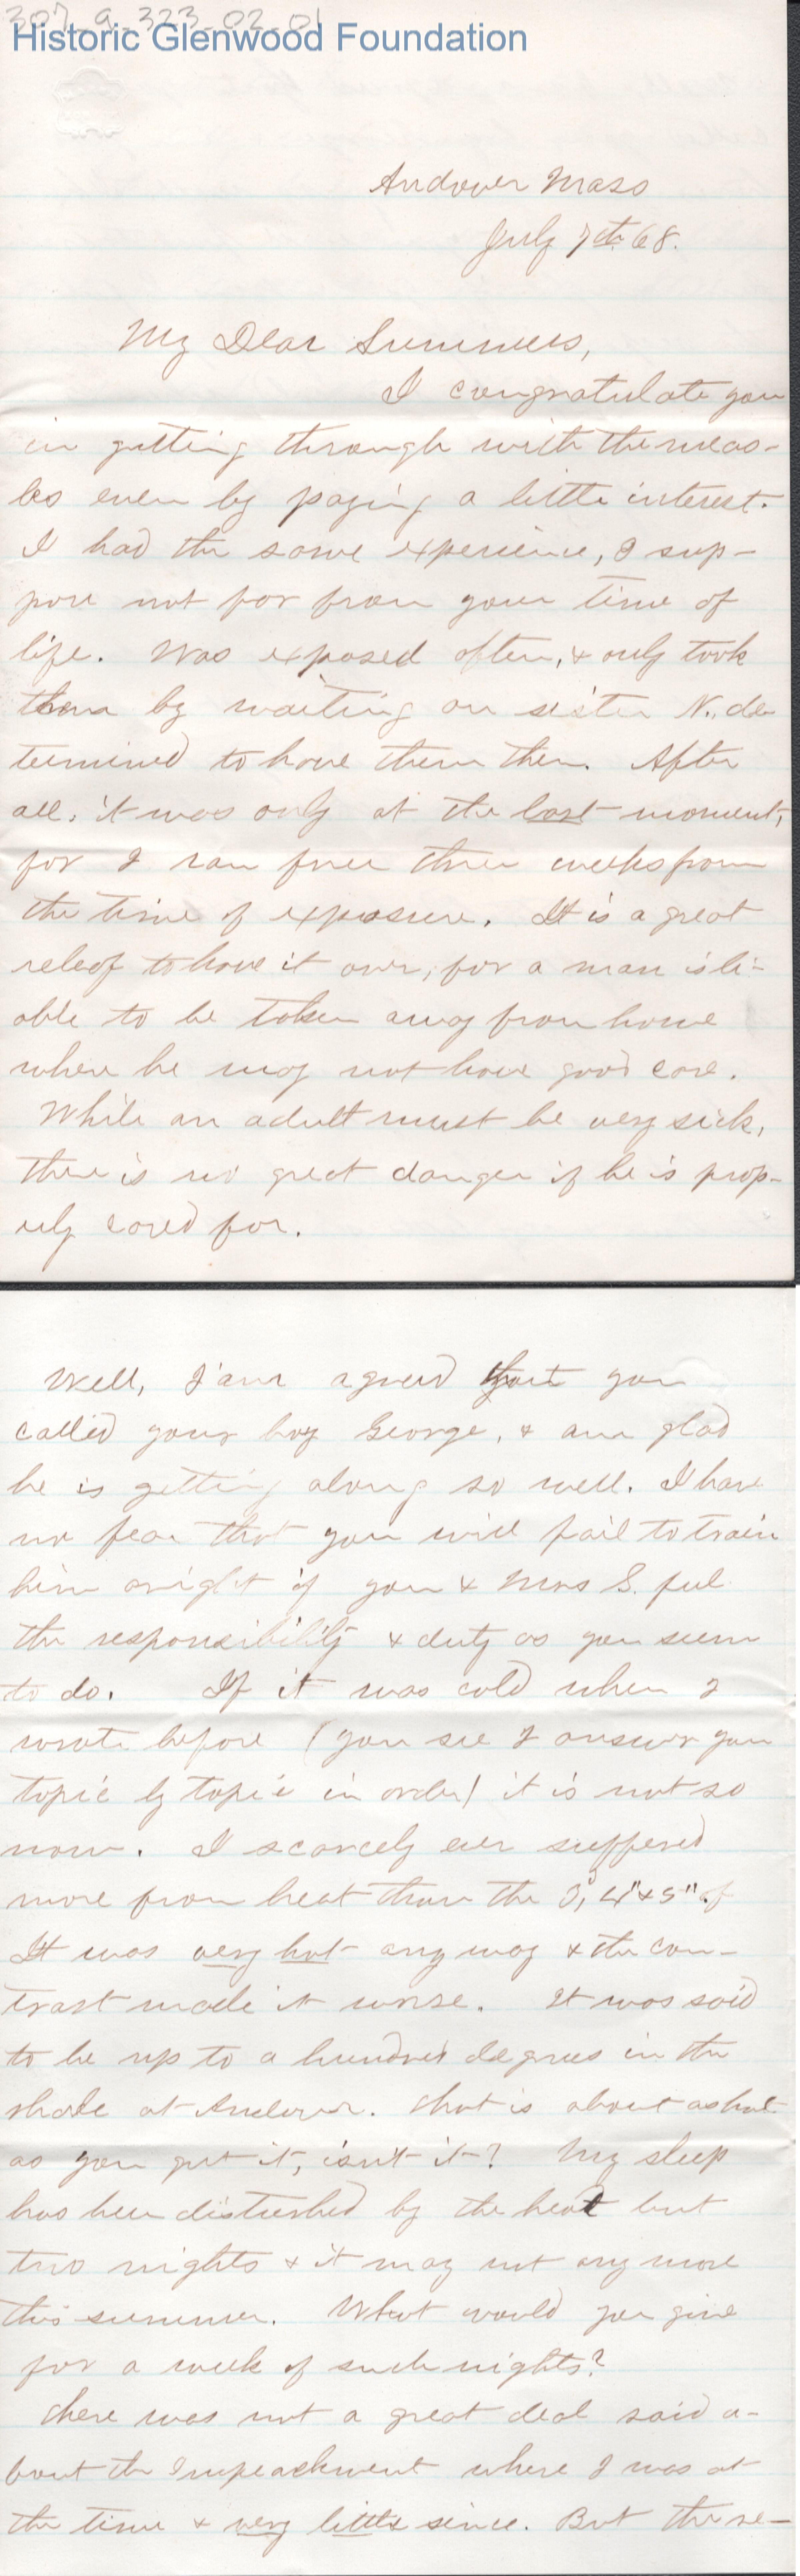 307_a_323-02-01
Historic Glenwood Foundation
Andover Mass
July 7th 68.
My Dear Summers,
I congratulate you
in getting through with the meas-
les even by paying a little interest.
I had the same experience, I sup-
pose not far from your time of
life. Was exposed often, & only took
them by waiting on sister N., de
termined to have them then. After
all, it was only at the last moment,
for I ran free three weeks from
the time of exposure. It is a great
releaf to have it over, for a man is li-
able to be taken away from home
where he may not have good care.
While an adult must be very sick,
there is no great danger if he is prop-
erly cared for.
Well, I am agreed that you
called your boy George, & am glad
he is getting along so well. I have
no fear that you will fail to train
him aright if you & Mrs S. feel
the responsibility & duty as you seem
to do. If it was cold when I
wrote before (you see I answer you
topic by topic in order) it is not so
now. I scarcely ever suffered
more from heat than the 3, 4" & 5"
It was very hot any way & the con-
trast made it worse. It was said
to be up to a hundred degrees in the
shade at Andover. That is about as hot
as you get it, isn't it? My sleep
has been disturbed by the heat but
two nights & it may not any more
this summer. What would you give
for a week of such nights?
There was not a great deal said a-
bout the Impeachment where I was at
the time & very little since. But the re-